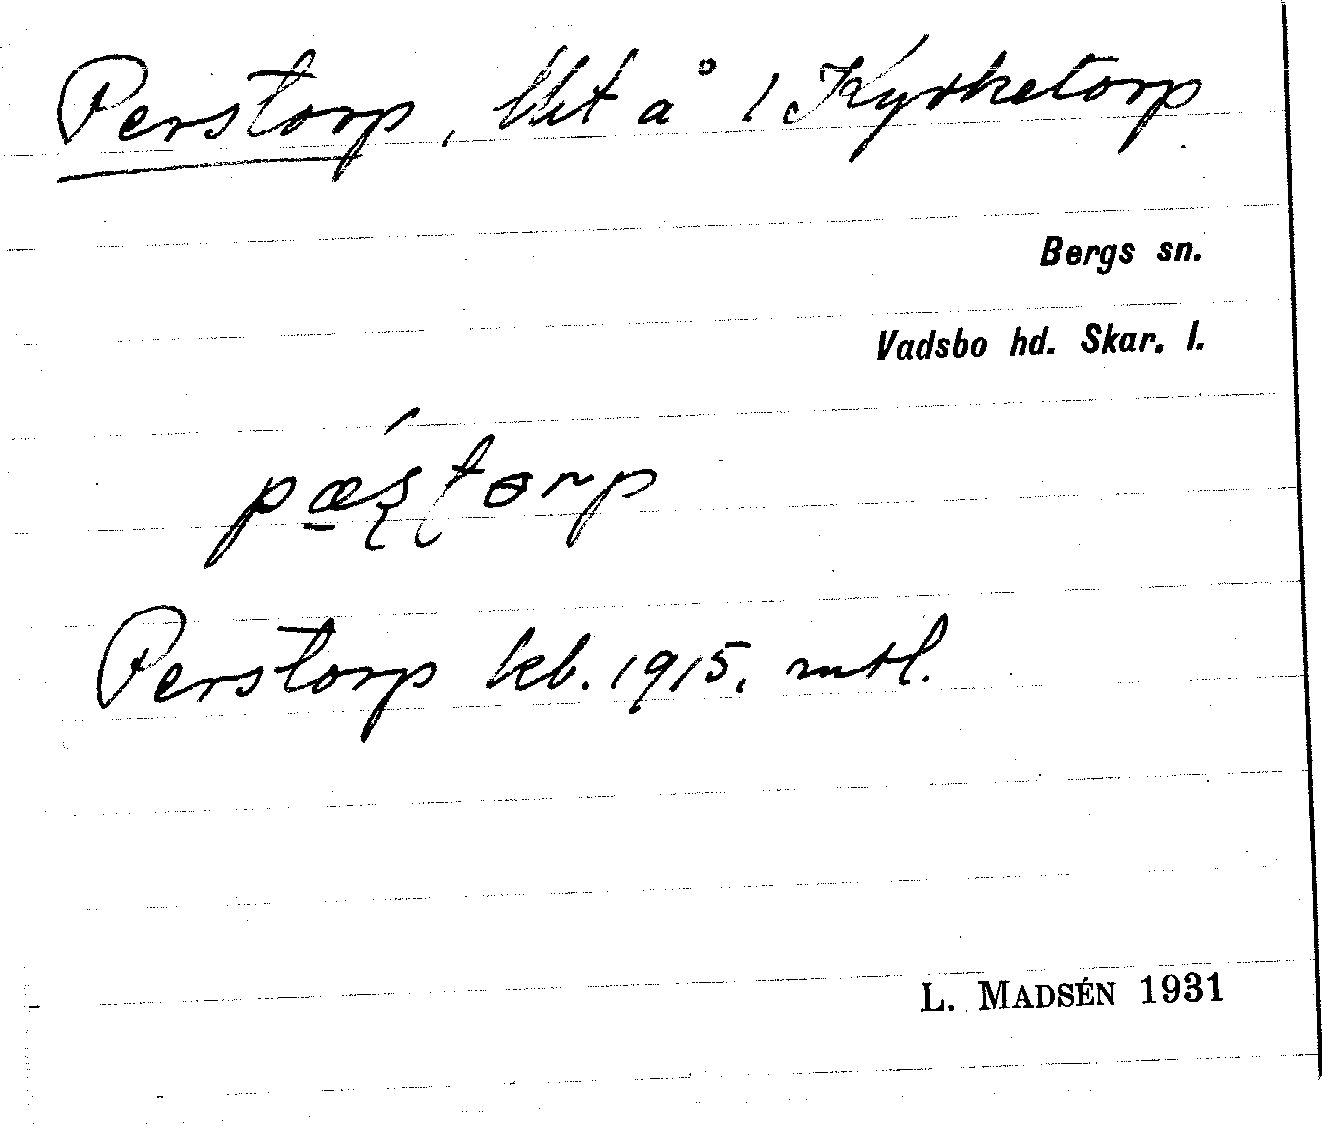 Perstorp, lht å 1 Kyrketorp
Bergs sn.
Vadsbo hd. Skar. l.
Perstorp kb. 1915. mtl.
L. MADSÉN 1931